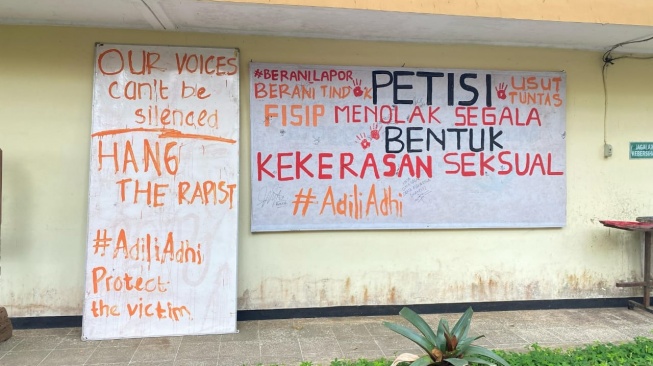 OUR VOICES
can't be
silenced
HANG
THE RAPIST
#AdiliAdhi
Protect
the victim
#BERANILAPOR
BERANI TINDOK
PETISI
USUT
TUNTAS
FISIP MENOLAK SEGALA
BENTUK
KEKERASAN SEKSUAL
#AdiliAdhi
JAGALAH
KEBERSIHAN